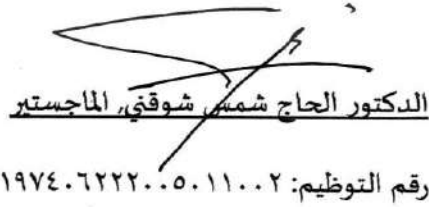 الدكتور الحاج شمس شوقني, الماجستير
رقم التوظيم: ١٩٧٤٠٦٢٢٢٠٠٥٠١١٠٠٢